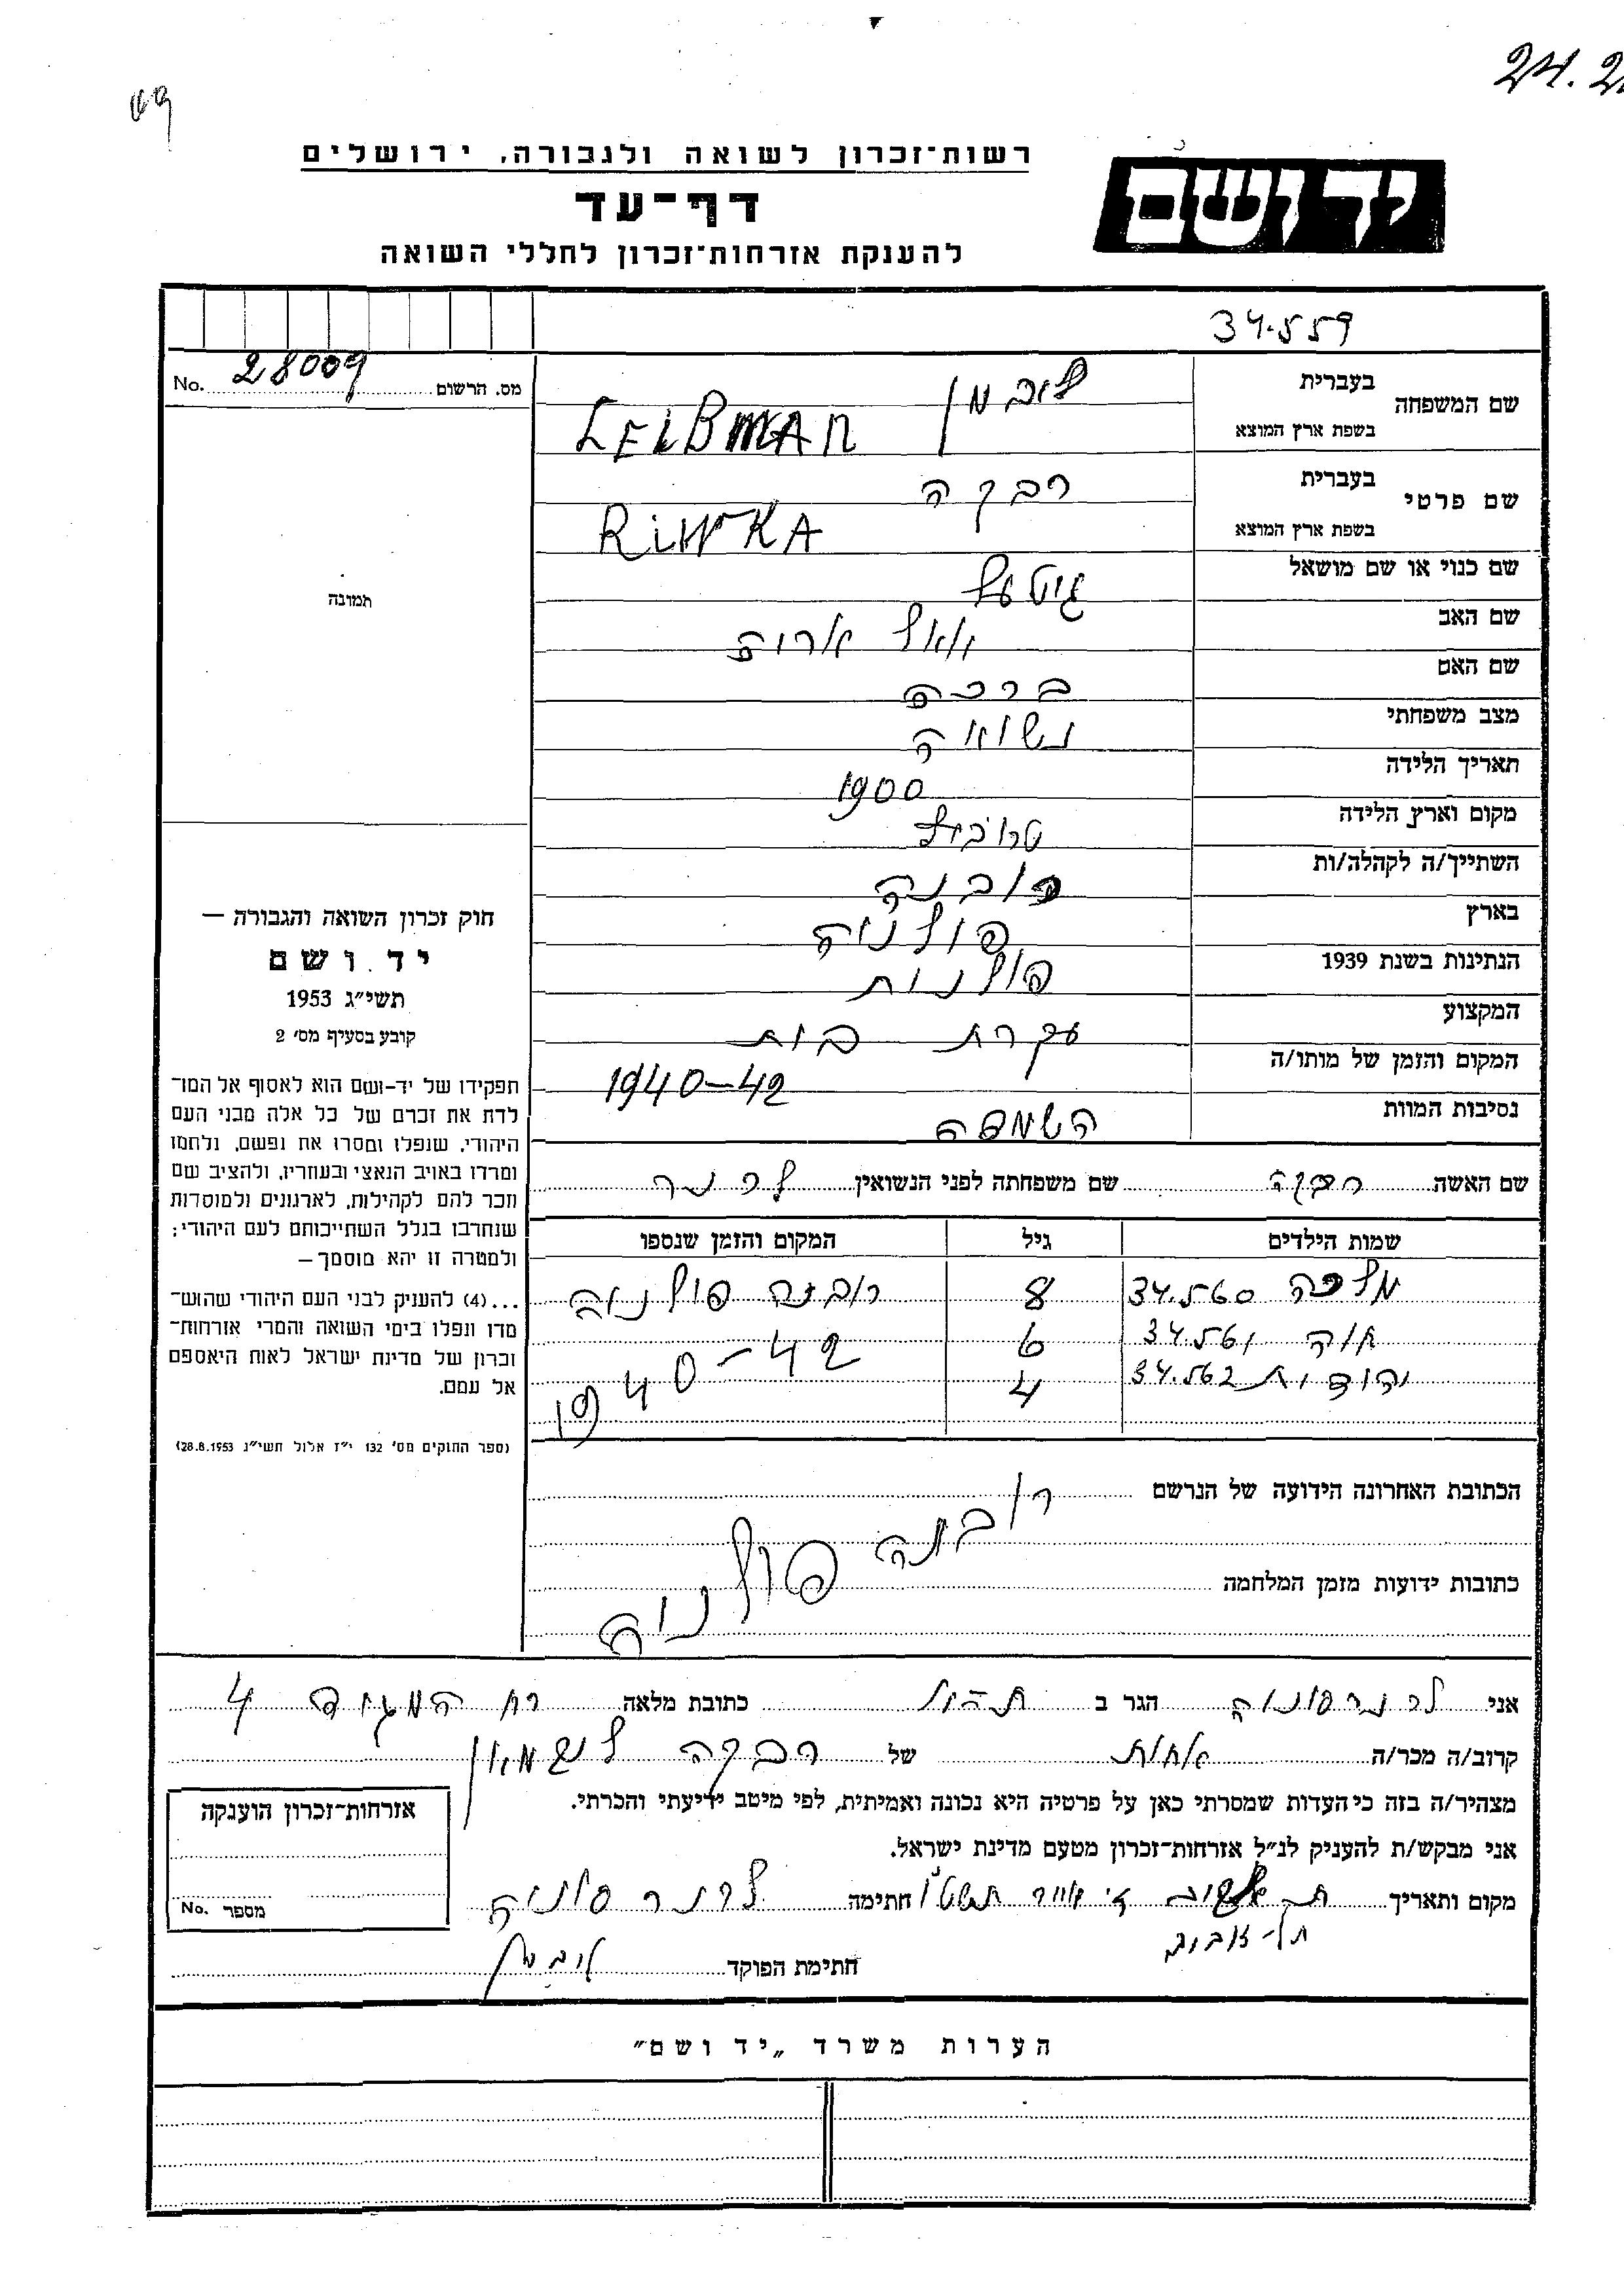 24.2
רשות־זכרון לשואה ולגבורה, ירושלים
יד ושם
דף־עד
להענקת אזרחות־זכרון לחללי השואה
34.559
מס. הרשום 28009 No.
שם המשפחה
בעברית ליבמן
בשפת ארץ המוצא LEIBMAN
שם פרטי
בעברית רבקה
בשפת ארץ המוצא RIWKA
שם כנוי או שם מושאל גיטעל
שם האב
שם האם ברכה
מצב משפחתי נשואה
תאריך הלידה 1900
מקום וארץ הלידה
השתייך/ה לקהלה/ות רובנה
בארץ פולניה
הנתינות בשנת 1939 פולנית
המקצוע עקרת בית
המקום והזמן של מותו/ה 1940-42
נסיבות המוות השמדה
שם האשה רבקה שם משפחתה לפני הנשואין לרנר
שמות הילדים גיל המקום והזמן שנספו
מלכה 34.560 8 רובנה פולניה
חוה 34.561 6 1940-42
יהודית 34.562 4
הכתובת האחרונה הידועה של הנרשם רובנה פולניה
כתובות ידועות מזמן המלחמה
תמונה
חוק זכרון השואה והגבורה —
יד ושם
תשי״ג 1953
קובע בסעיף מס׳ 2
תפקידו של יד-ושם הוא לאסוף אל המו־
לדת את זכרם של כל אלה מבני העם
היהודי, שנפלו ומסרו את נפשם, נלחמו
ומרדו באויב הנאצי ובעוזריו, ולהציב שם
וזכר להם לקהילות, לארגונים ולמוסדות
שנחרבו בגלל השתייכותם לעם היהודי;
ולמטרה זו יהא מוסמך —
...(4) להעניק לבני העם היהודי שהוש־
מדו ונפלו בימי השואה והמרי אזרחות־
זכרון של מדינת ישראל לאות היאספם
אל עמם.
(ספר החוקים מס׳ 132 י״ז אלול תשי״ג 28.8.1953)
אני לרנר סוניה הגר ב כתובת מלאה רח המגיד 4
קרוב/ה מכר/ה אחות של רבקה ליבמאן
מצהיר/ה בזה כי העדות שמסרתי כאן על פרטיה היא נכונה ואמיתית, לפי מיטב ידיעתי והכרתי.
אני מבקש/ת להעניק לנ״ל אזרחות־זכרון מטעם מדינת ישראל.
מקום ותאריך אייר תשט״ו חתימה לרנר סוניה
תל-אביב
חתימת הפוקד
אזרחות־זכרון הוענקה
מספר No.
הערות משרד „יד ושם״